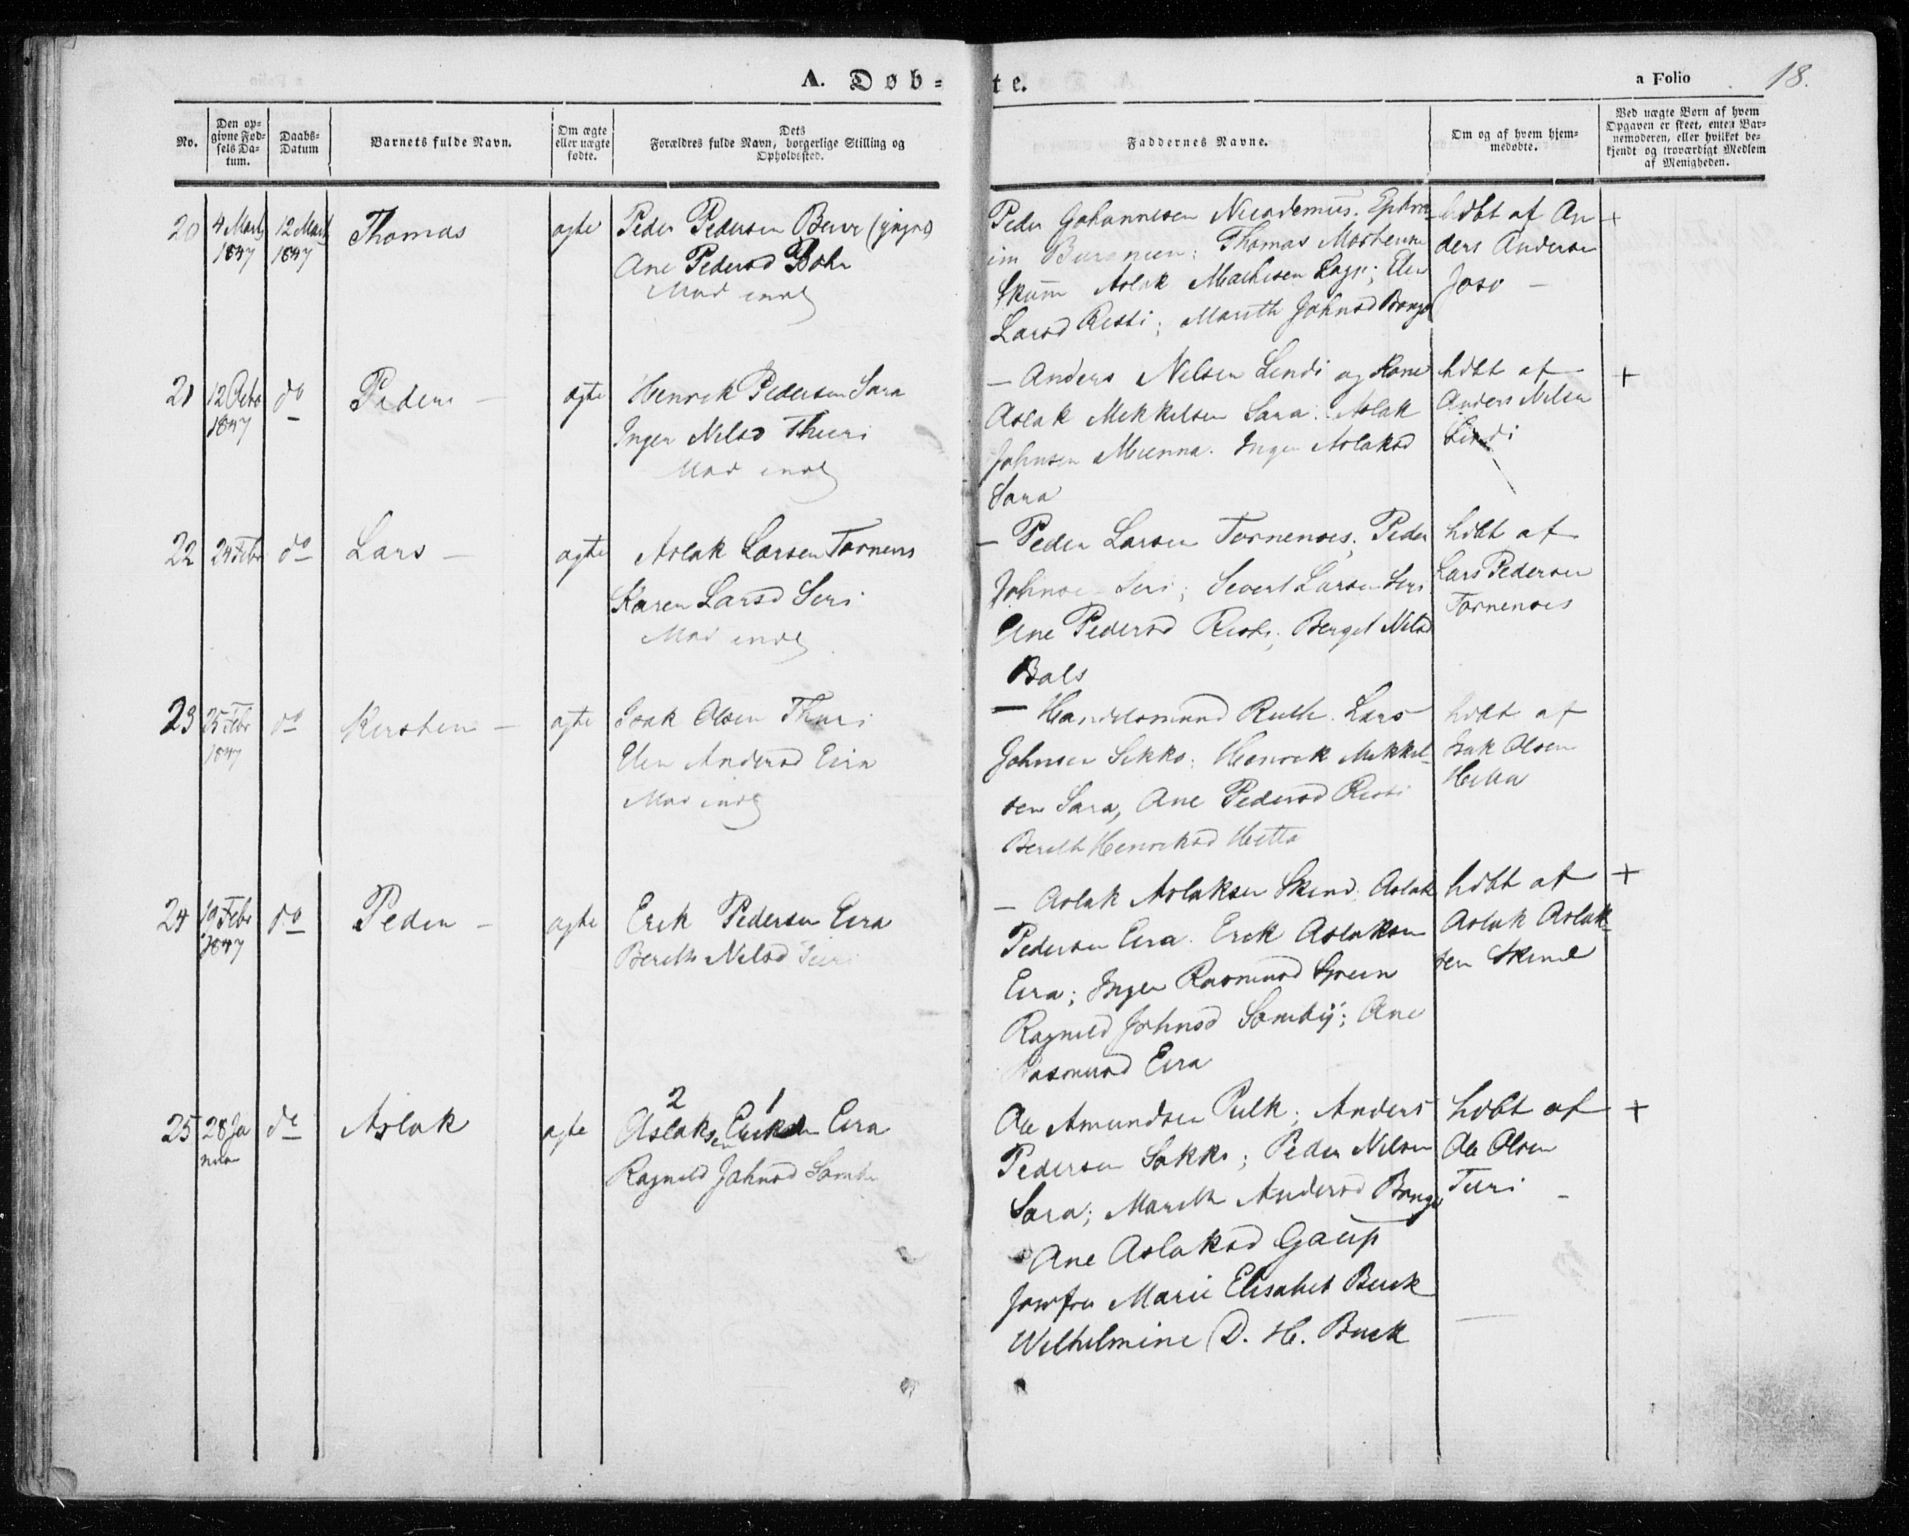 A. Døb=te.
a Folio 18.
No.
Den op=
givne Fød=
sels Da=
tum.
Daabs=
Datum
Barnets fulde Navn.
Om ægte
eller uægte
fødte.
Dets
Forældres fulde Navn, borgerlige Stilling og
Opholdssted.
Faddernes Navne.
Om og af hvem hjem=
medøbte.
Ved uægte Børn af hvem
Opgaven er skeet, enten Bar=
nemoderen, eller hvilket be=
kjendt og troværdigt Medlem
af Menigheden.
20
4 Marts
1847
12 Marts
1847
Thomas
ægte
Peder Pedersen
Ane Pedersd
Peder Johannesen Nicodemus. Ephra
im
Thomas Mortensen
Skum Aslak Mathisen
Larsd Risti; Marith Johnsd Bongo
hdbt af An
ders Andersen
Joso –
+
21
12
1847
do
Peder –
ægte
Henrik Pedersen Sara
Inger Nilsd Thuri
– Anders Nilsen Lindi og Kone
Aslak Mekkelsen Sara. Aslak
Johnsen Mienna. Inger Aslaksd
Sara
hdbt af
Anders Nilsen
Lindi
+
22
24 Febr
do
Lars –
ægte
Aslak Larsen Tornens
Karen Larsd Seri
– Peder Larsen Tornenses; Peder
Johnsen Seri; Severt Larsen Seri
Ane Pedersd Risti; Berget Nilsd
Bals
hdbt af
Lars Pedersen
Tornenses
23
25 Febr
1847
do
Kirsten –
ægte
Isak Olsen Thuri
Elen Andersd Eira
– Handelsmand Ruth. Lars
Johnsen Sikko; Henrik Mikkel
sen Sara, Ane Pedersd Risti
Berith Henriksd Hetta
hdbt af
Isak Olsen
Hetta
24
19 Febr
1847
do
Peder –
ægte
Erik Pedersen Eira
Berith Nilsd Turi
– Aslak Aslaksen Skind. Aslak
Pedersen Eira. Erik Aslaksen
Eira; Inger Rasmusd Spein
Ragnild Johnsd Somby; Ane
Rasmusd Eira
hdbt af
Aslak Aslak
sen Skind
+
25
28 Ja
nuar
do
Aslak
ægte
2 1
Aslaksen Eriksen Eira
Ragnild Johnsd Somby
Ole Amundsen Pulk; Anders
Pedersen Sokki; Peder Nilsen
Sara; Marith Andersd Bongo
Ane Aslaksd Gaup
Jomfru Marie Elisabet Buck
Wilhelmine D. H. Buck
hdbt af
Ole Olsen
Turi –
+